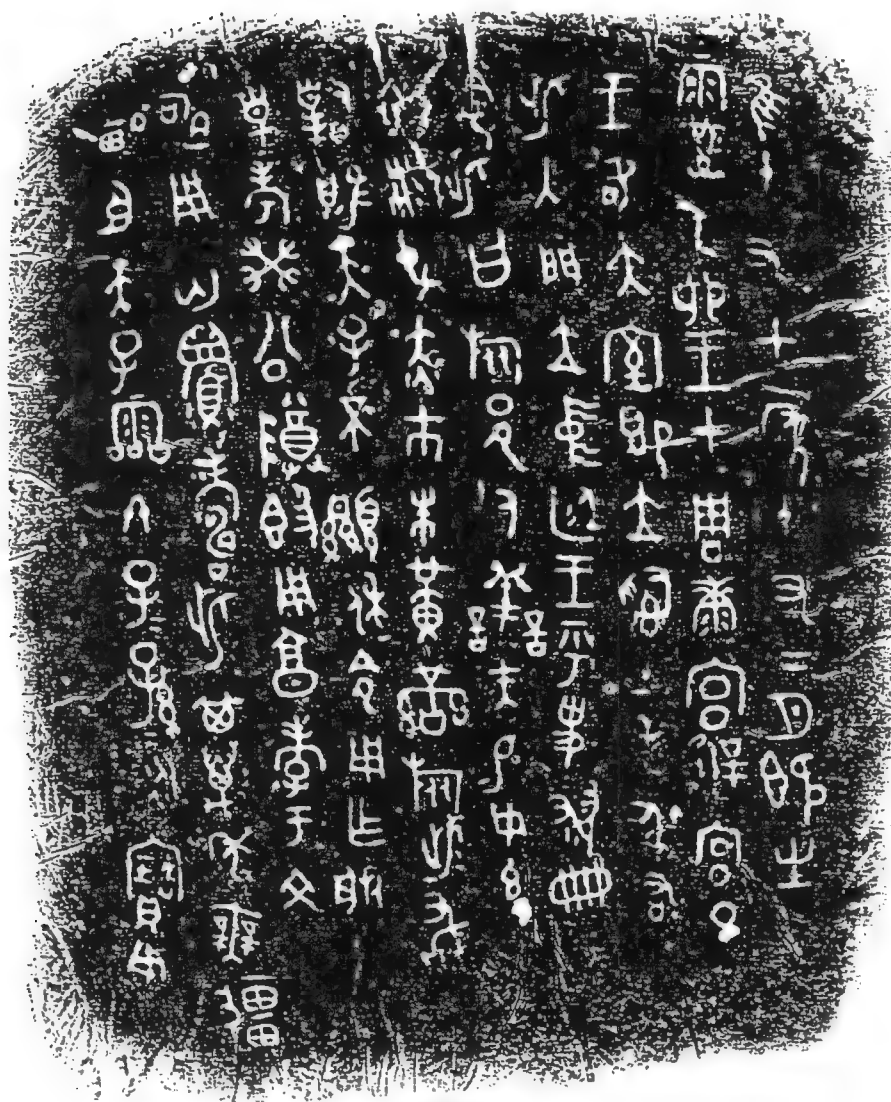 隹十又七年十又二月既生
霸乙卯王才周康宮徲宮旦
王各大室即立𤔲土毛弔右
此入門立中廷王乎史翏冊
令此曰旅邑人善夫易女玄
衣黹屯赤巿朱黃䜌旂此敢
對揚天子不顯休令用乍朕
皇考癸公尊𣪘用亯孝于文
申用匄眉壽此其萬年無彊
畯臣天子霝冬子子孫孫永寶用